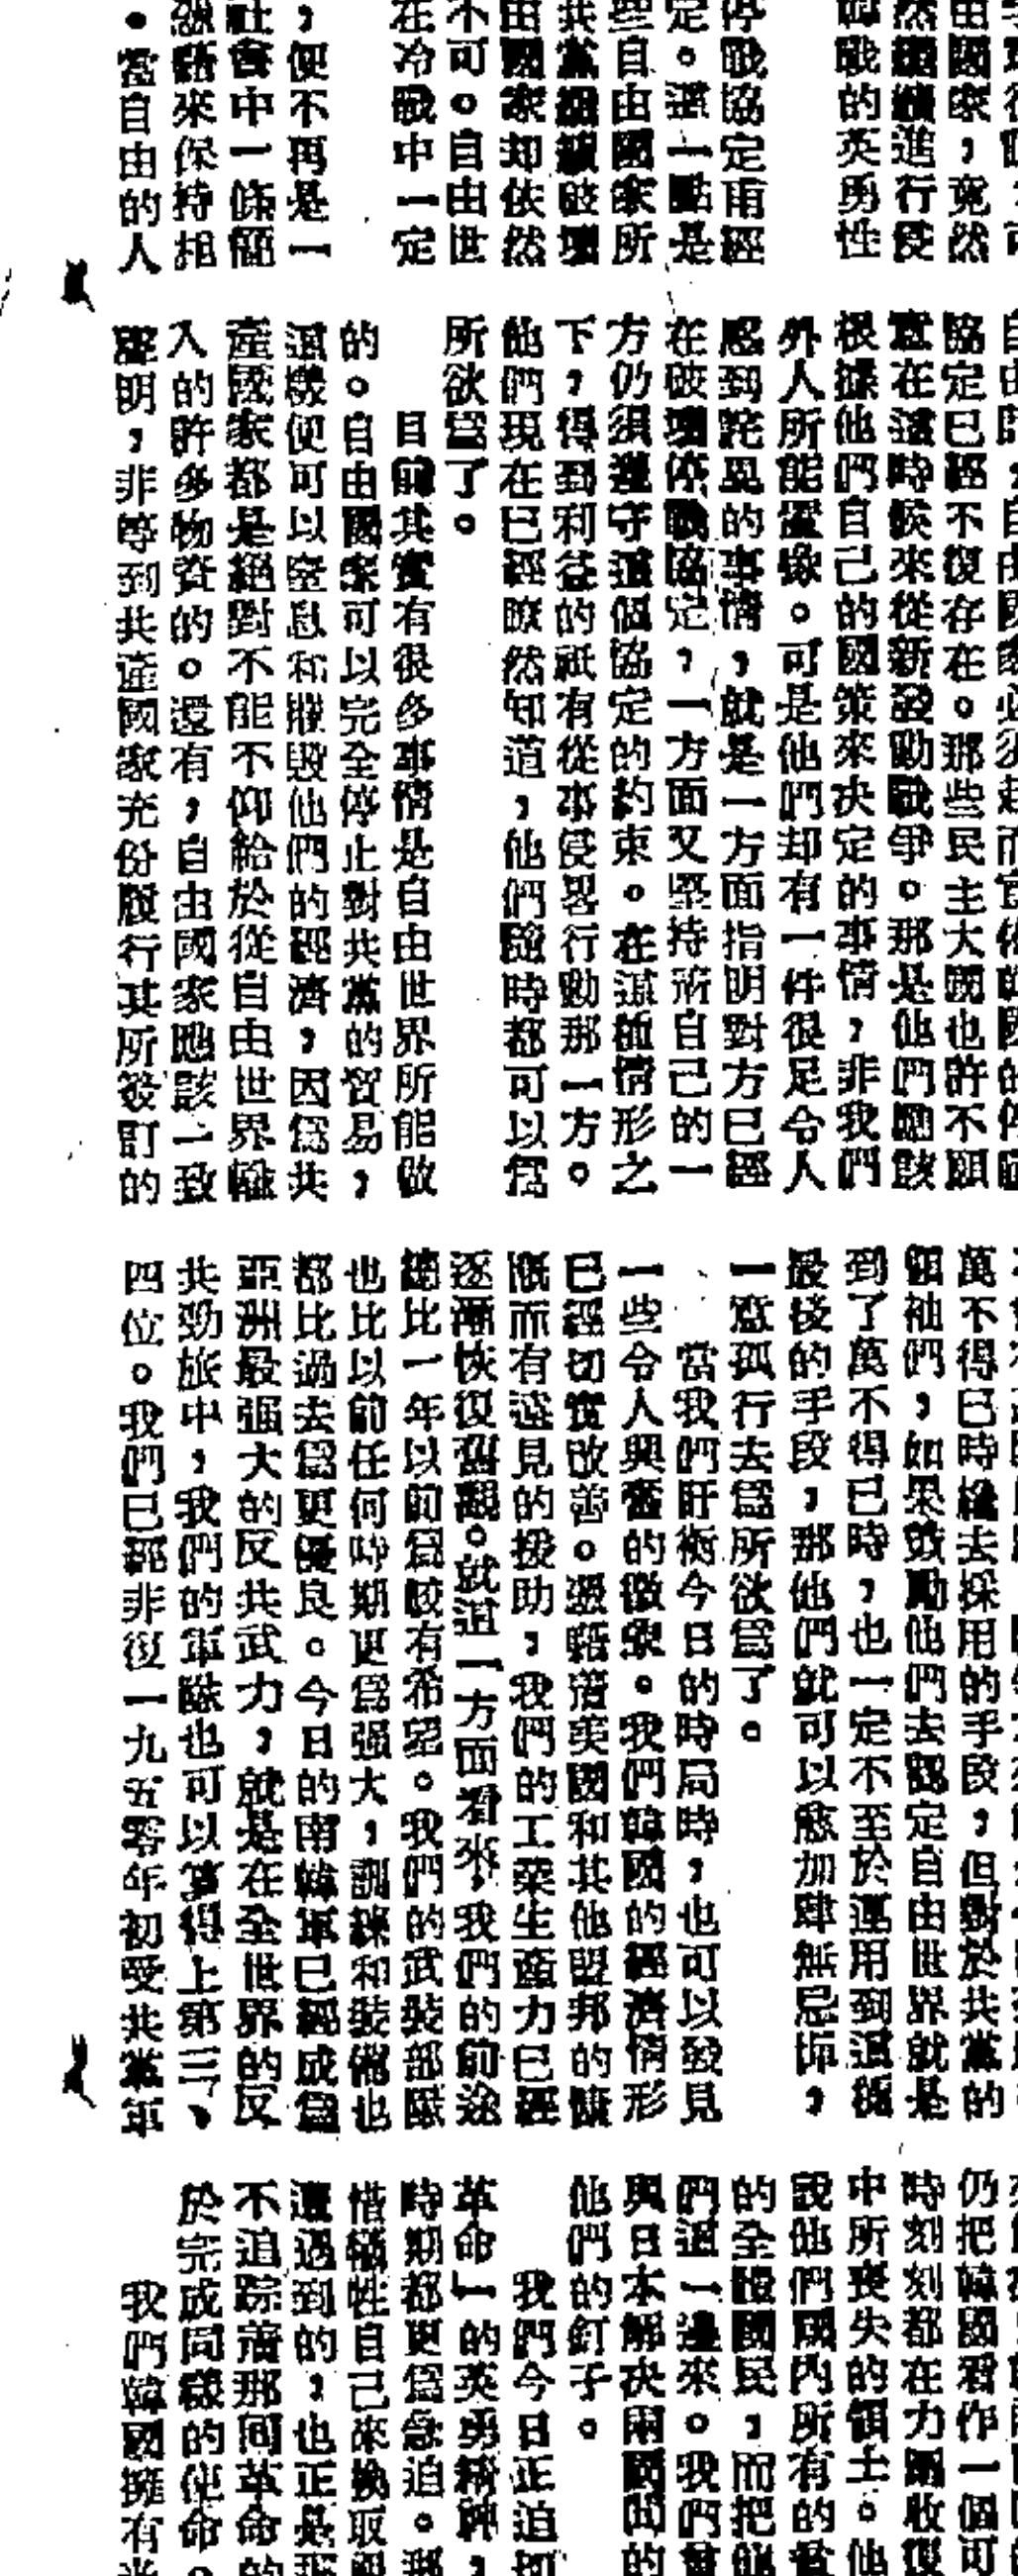 由國家，竟然
然繼續進行侵
戰的英勇性
停戰協定甫經
定。這一點是
些自由國家所
共黨繼續破壞
由國家却依然
不可。自由世
在冷戰中一定
，便不再是一
社會中一條簡
路來保持相
。當自由的人
協定已經不復存在。那些民主大國也許不願
意在這時候來從新發動戰爭。那是他們應該
根據他們自己的國策來決定的事情，非我們
外人所能置喙。可是他們却有一件很足令人
感到詫異的事情，就是一方面指明對方已經
在破壞停戰協定，一方面又堅持着自己的一
方仍須遵守這個協定的約束。在這種情形之
下，得到利益的祇有從事侵畧行動那一方。
他們現在已經瞭然知道，他們隨時都可以爲
所欲爲了。
目前其實有很多事情是自由世界所能做
的。自由國家可以完全停止對共黨的貿易，
這樣便可以窒息和摧毁他們的經濟，因爲共
產國家都是絕對不能不仰給於從自由世界輸
入的許多物資的。還有，自由國家應該一致
聲明，非等到共產國家充份履行其所簽訂的
萬不得已時纔去採用的手段，但對於共黨的
領袖們，如果鼓勵他們去認定自由世界就是
到了萬不得已時，也一定不至於運用到這種
最後的手段，那他們就可以愈加肆無忌憚，
一意孤行去爲所欲爲了。
當我們盱衡今日的時局時，也可以發見
一些令人興奮的徵象。我們韓國的經濟情形
已經切實改善。憑藉着美國和其他盟邦的慷
慨而有遠見的援助，我們的工業生產力已經
逐漸恢復舊觀。就這一方面看來，我們的前途
總比一年以前爲較有希望。我們的武裝部隊
也比以前任何時期更爲强大，訓練和裝備也
都比過去爲更優良。今日的南韓軍已經成爲
亞洲最强大的反共武力，就是在全世界的反
共勁旅中，我們的軍隊也可以算得上第三、
四位。我們已經非復一九五零年初受共黨軍
仍把韓國看作一個可
時刻刻都在力圖收復
中所喪失的領土。他
說他們國內所有的
的全體國民，而把
們這一邊來。我們
與日本解決兩國間的
他們的釘子。
我們今日正迫切
革命」的英勇精神，
時期都更爲急迫。那
惜犧牲自己來挽取
遭遇到的，也正是
不追踪着那同革命的
於完成同樣的使命。
我們韓國擁有